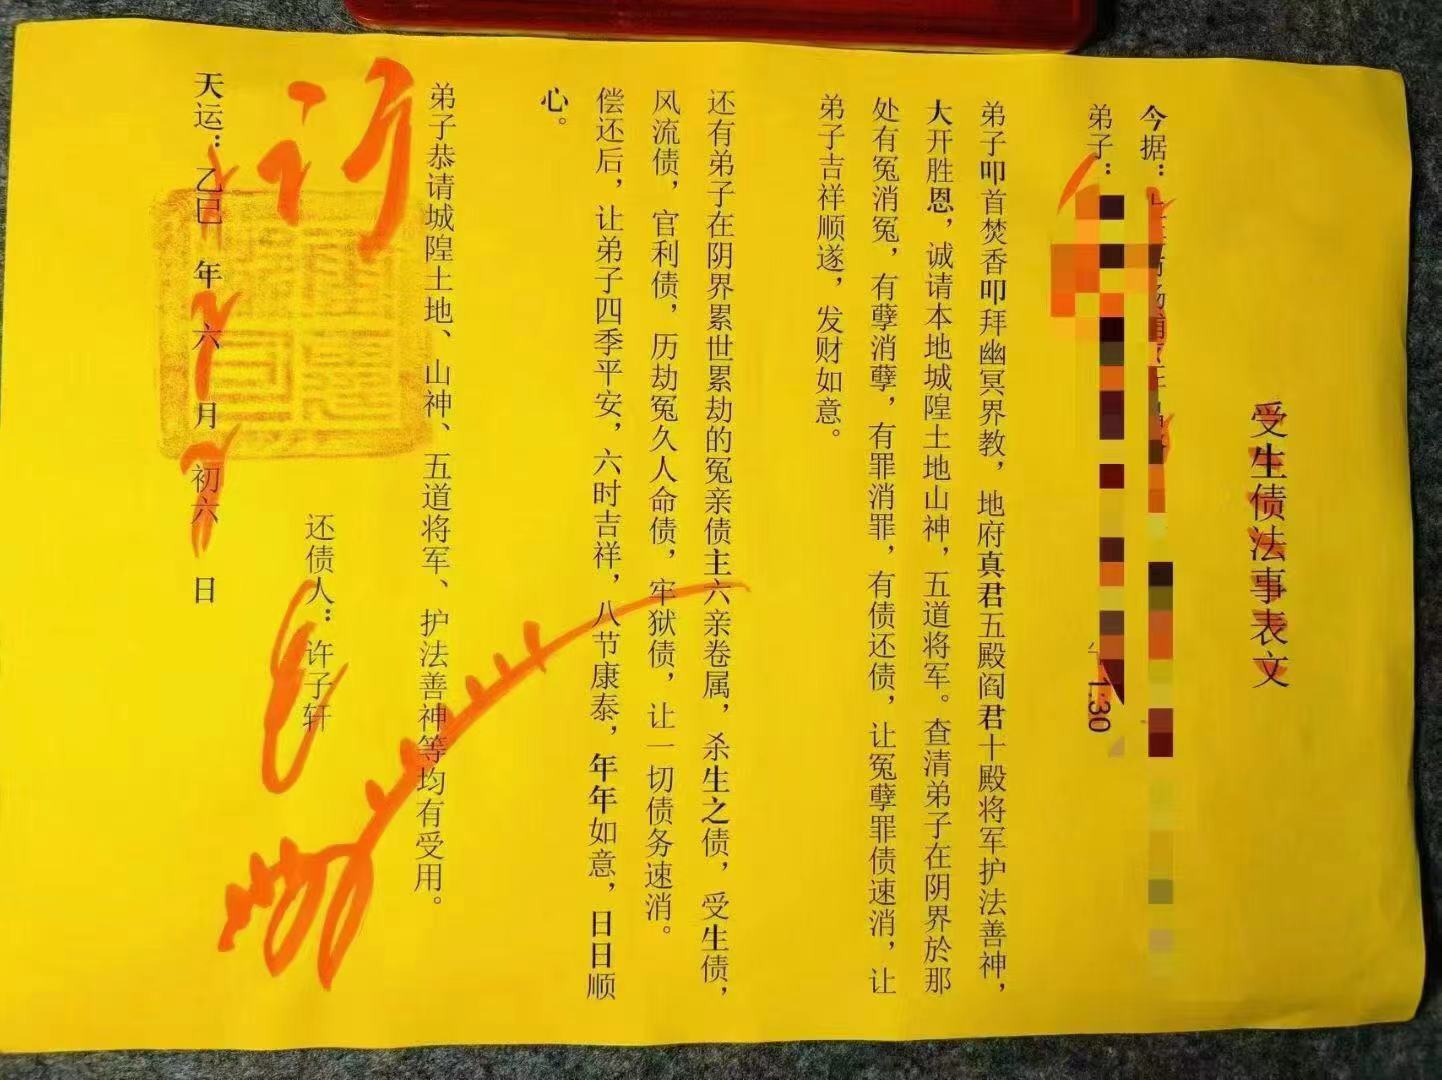 受生债法事表文
今据：
弟子：
午 1:30
弟子叩首焚香叩拜幽冥界教，地府真君五殿阎君十殿将军护法善神，
大开胜恩，诚请本地城隍土地山神，五道将军。查清弟子在阴界於那
处有冤消冤，有孽消孽，有罪消罪，有债还债，让冤孽罪债速消，让
弟子吉祥顺遂，发财如意。
还有弟子在阴界累世累劫的冤亲债主六亲卷属，杀生之债，受生债，
风流债，官利债，历劫冤久人命债，牢狱债，让一切债务速消。
偿还后，让弟子四季平安，六时吉祥，八节康泰，年年如意，日日顺
心。
弟子恭请城隍土地、山神、五道将军、护法善神等均有受用。
还债人：许子轩
准
天运：乙巳 年 六 月 初六 日